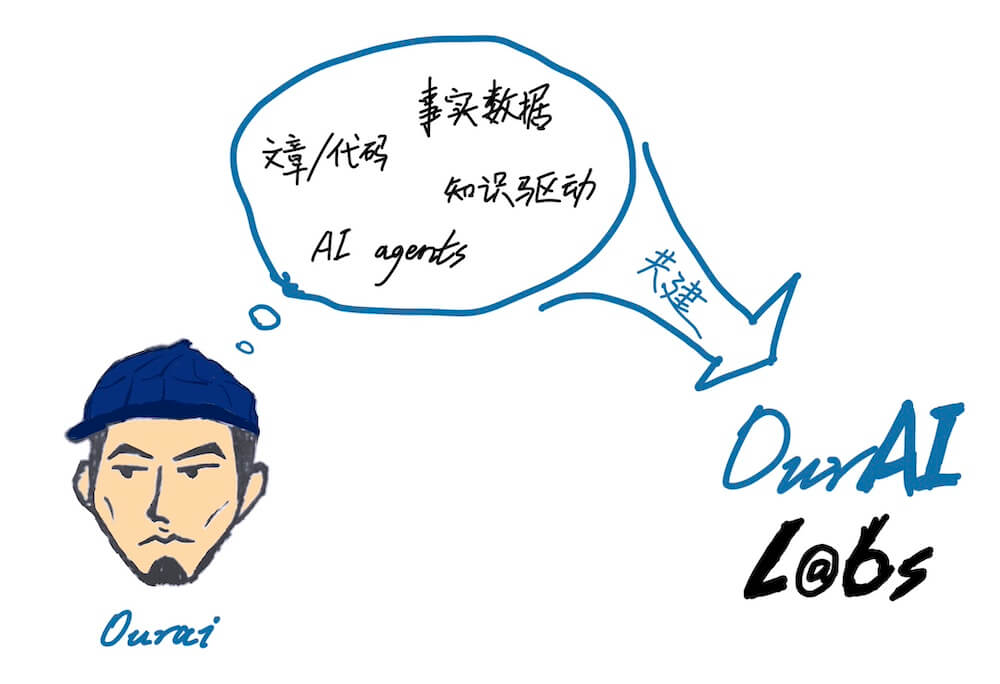 事实数据
文章/代码
知识驱动
AI agents
共建
OurAI
L@bs
Ourai